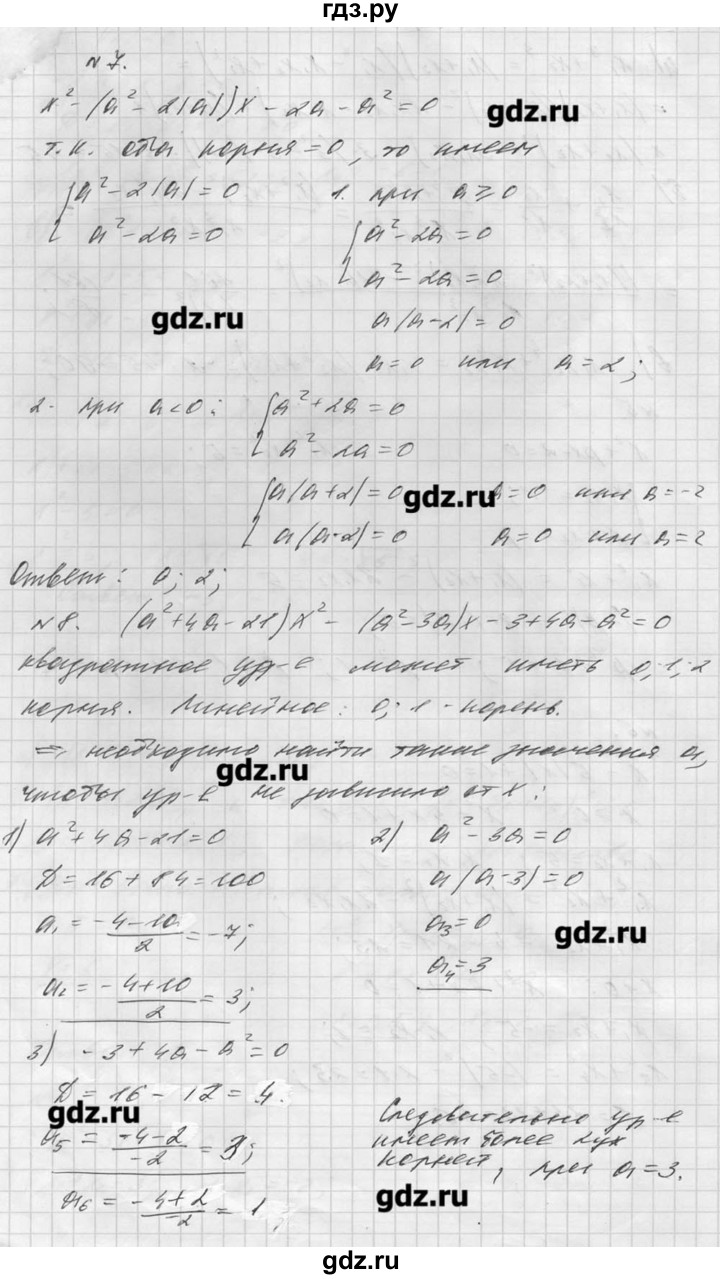 гдз.ру
№7.
x² - (a² - 2|a|)x - 2a - a² = 0
gdz.ru
т.к. оба корня = 0, то имеем
{ a² - 2|a| = 0
a² - 2a = 0
1. при a ≥ 0
{ a² - 2a = 0
a² - 2a = 0
gdz.ru
a(a-2) = 0
a = 0 или a = 2;
2. при a < 0: { a² + 2a = 0
a² - 2a = 0
{ a(a+2) = 0 a = 0 или a = -2
gdz.ru
a(a-2) = 0 a = 0 или a = 2
Ответ: 0; 2;
№8. (a² + 4a - 21)x² - (a² - 3a)x - 3 + 4a - a² = 0
квадратное ур-е может иметь 0; 1; 2
корня. Линейное: 0; 1 - корень.
⇒ необходимо найти такие значения a,
gdz.ru
чтобы ур-е не зависило от x:
1) a² + 4a - 21 = 0
D = 16 + 84 = 100
a₁ = (-4-10)/2 = -7;
a₂ = (-4+10)/2 = 3;
2) a² - 3a = 0
a(a-3) = 0
a₃ = 0
gdz.ru
a₄ = 3
3) -3 + 4a - a² = 0
D = 16 - 12 = 4.
gdz.ru
a₅ = (-4-2)/-2 = 3;
a₆ = (-4+2)/-2 = 1;
Следовательно ур-е
имеет более двух
корней, при a = 3.
gdz.ru
gdz.ru